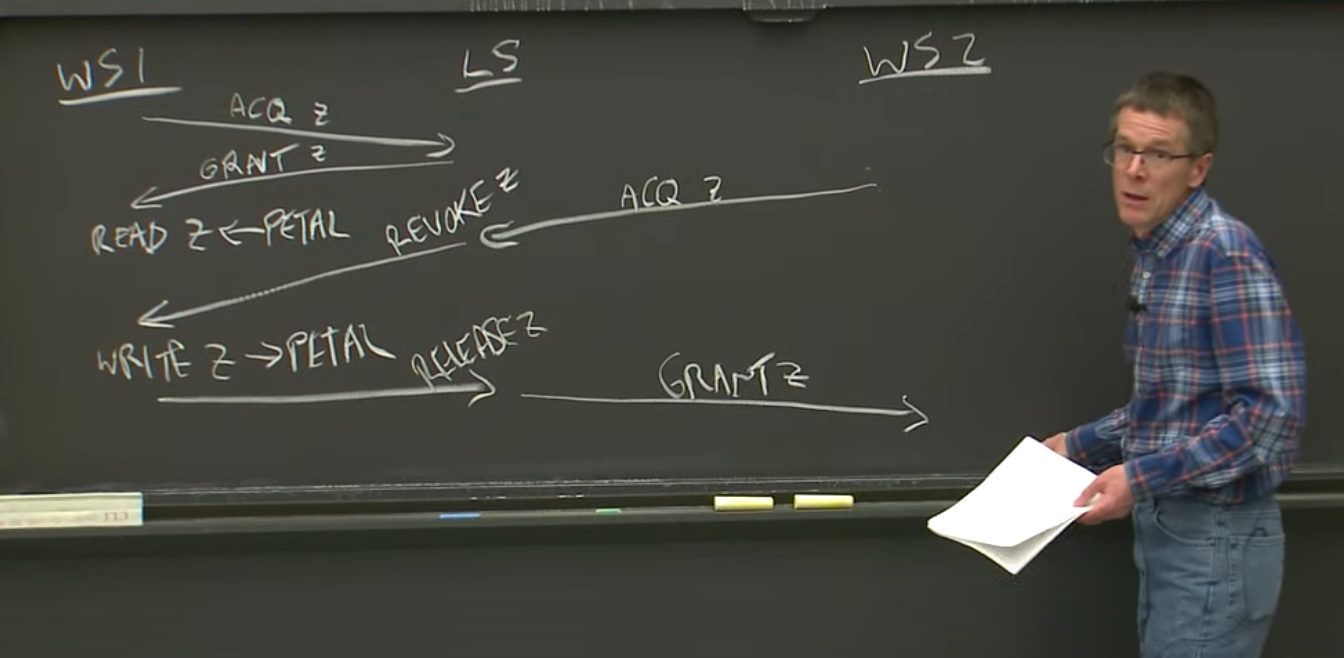 WS1 LS WS2
ACQ Z
GRANT Z
ACQ Z
REVOKE Z
READ Z ← PETAL
WRITE Z → PETAL
RELEASE Z
GRANT Z